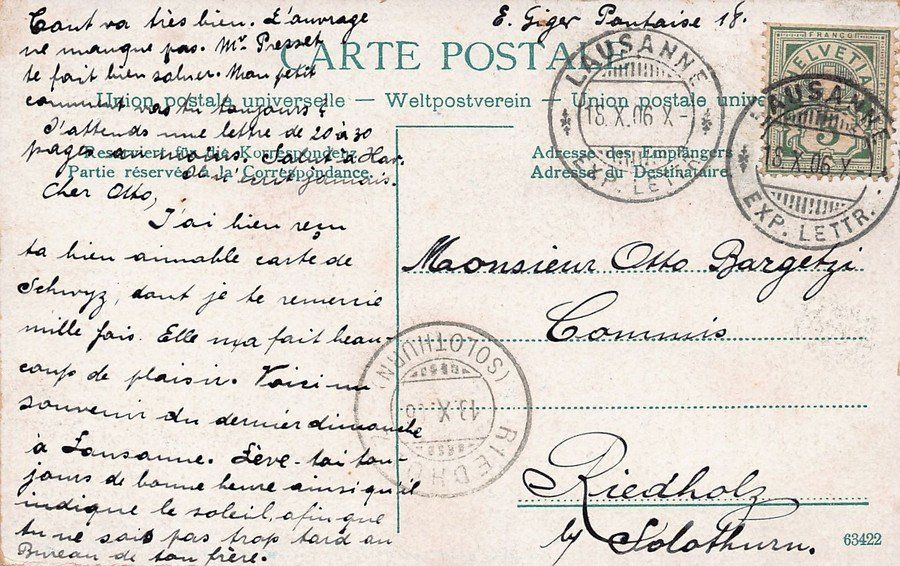 Tout va très bien. L'ouvrage
ne manque pas. Mr Presset
te fait bien saluer. Mon petit
comment vas tu toujours?
J'attends une lettre de 20 à 30
pages au moins. Salut à
jamais.
E. Giger Pontaise 18.
CARTE POSTALE
Union postale universelle — Weltpostverein — Union postale
Reserviert für die Korrespondenz
Partie réservée à la Correspondance.
Cher Otto,
J'ai bien reçu
ta bien aimable carte de
Schwyz, dont je te remercie
mille fois. Elle m'a fait beau-
coup de plaisir. Voici un
souvenir du dernier dimanche
à Lausanne. Lève-toi tou-
jours de bonne heure ainsi qu'il
indique le soleil, afin que
tu ne sois pas trop tard au
Bureau de ton frère.
FRANCO
HELVETIA
5
LAUSANNE
18.X.06 X-
EXP. LETTR.
LAUSANNE
18.X.06 X-
EXP. LETTR.
Adresse des Empfängers
Adresse du Destinataire
Monsieur Otto Bargetzi
Commis
Riedholz
by Solothurn.
RIEDHOLZ
(SOLOTHURN)
63422